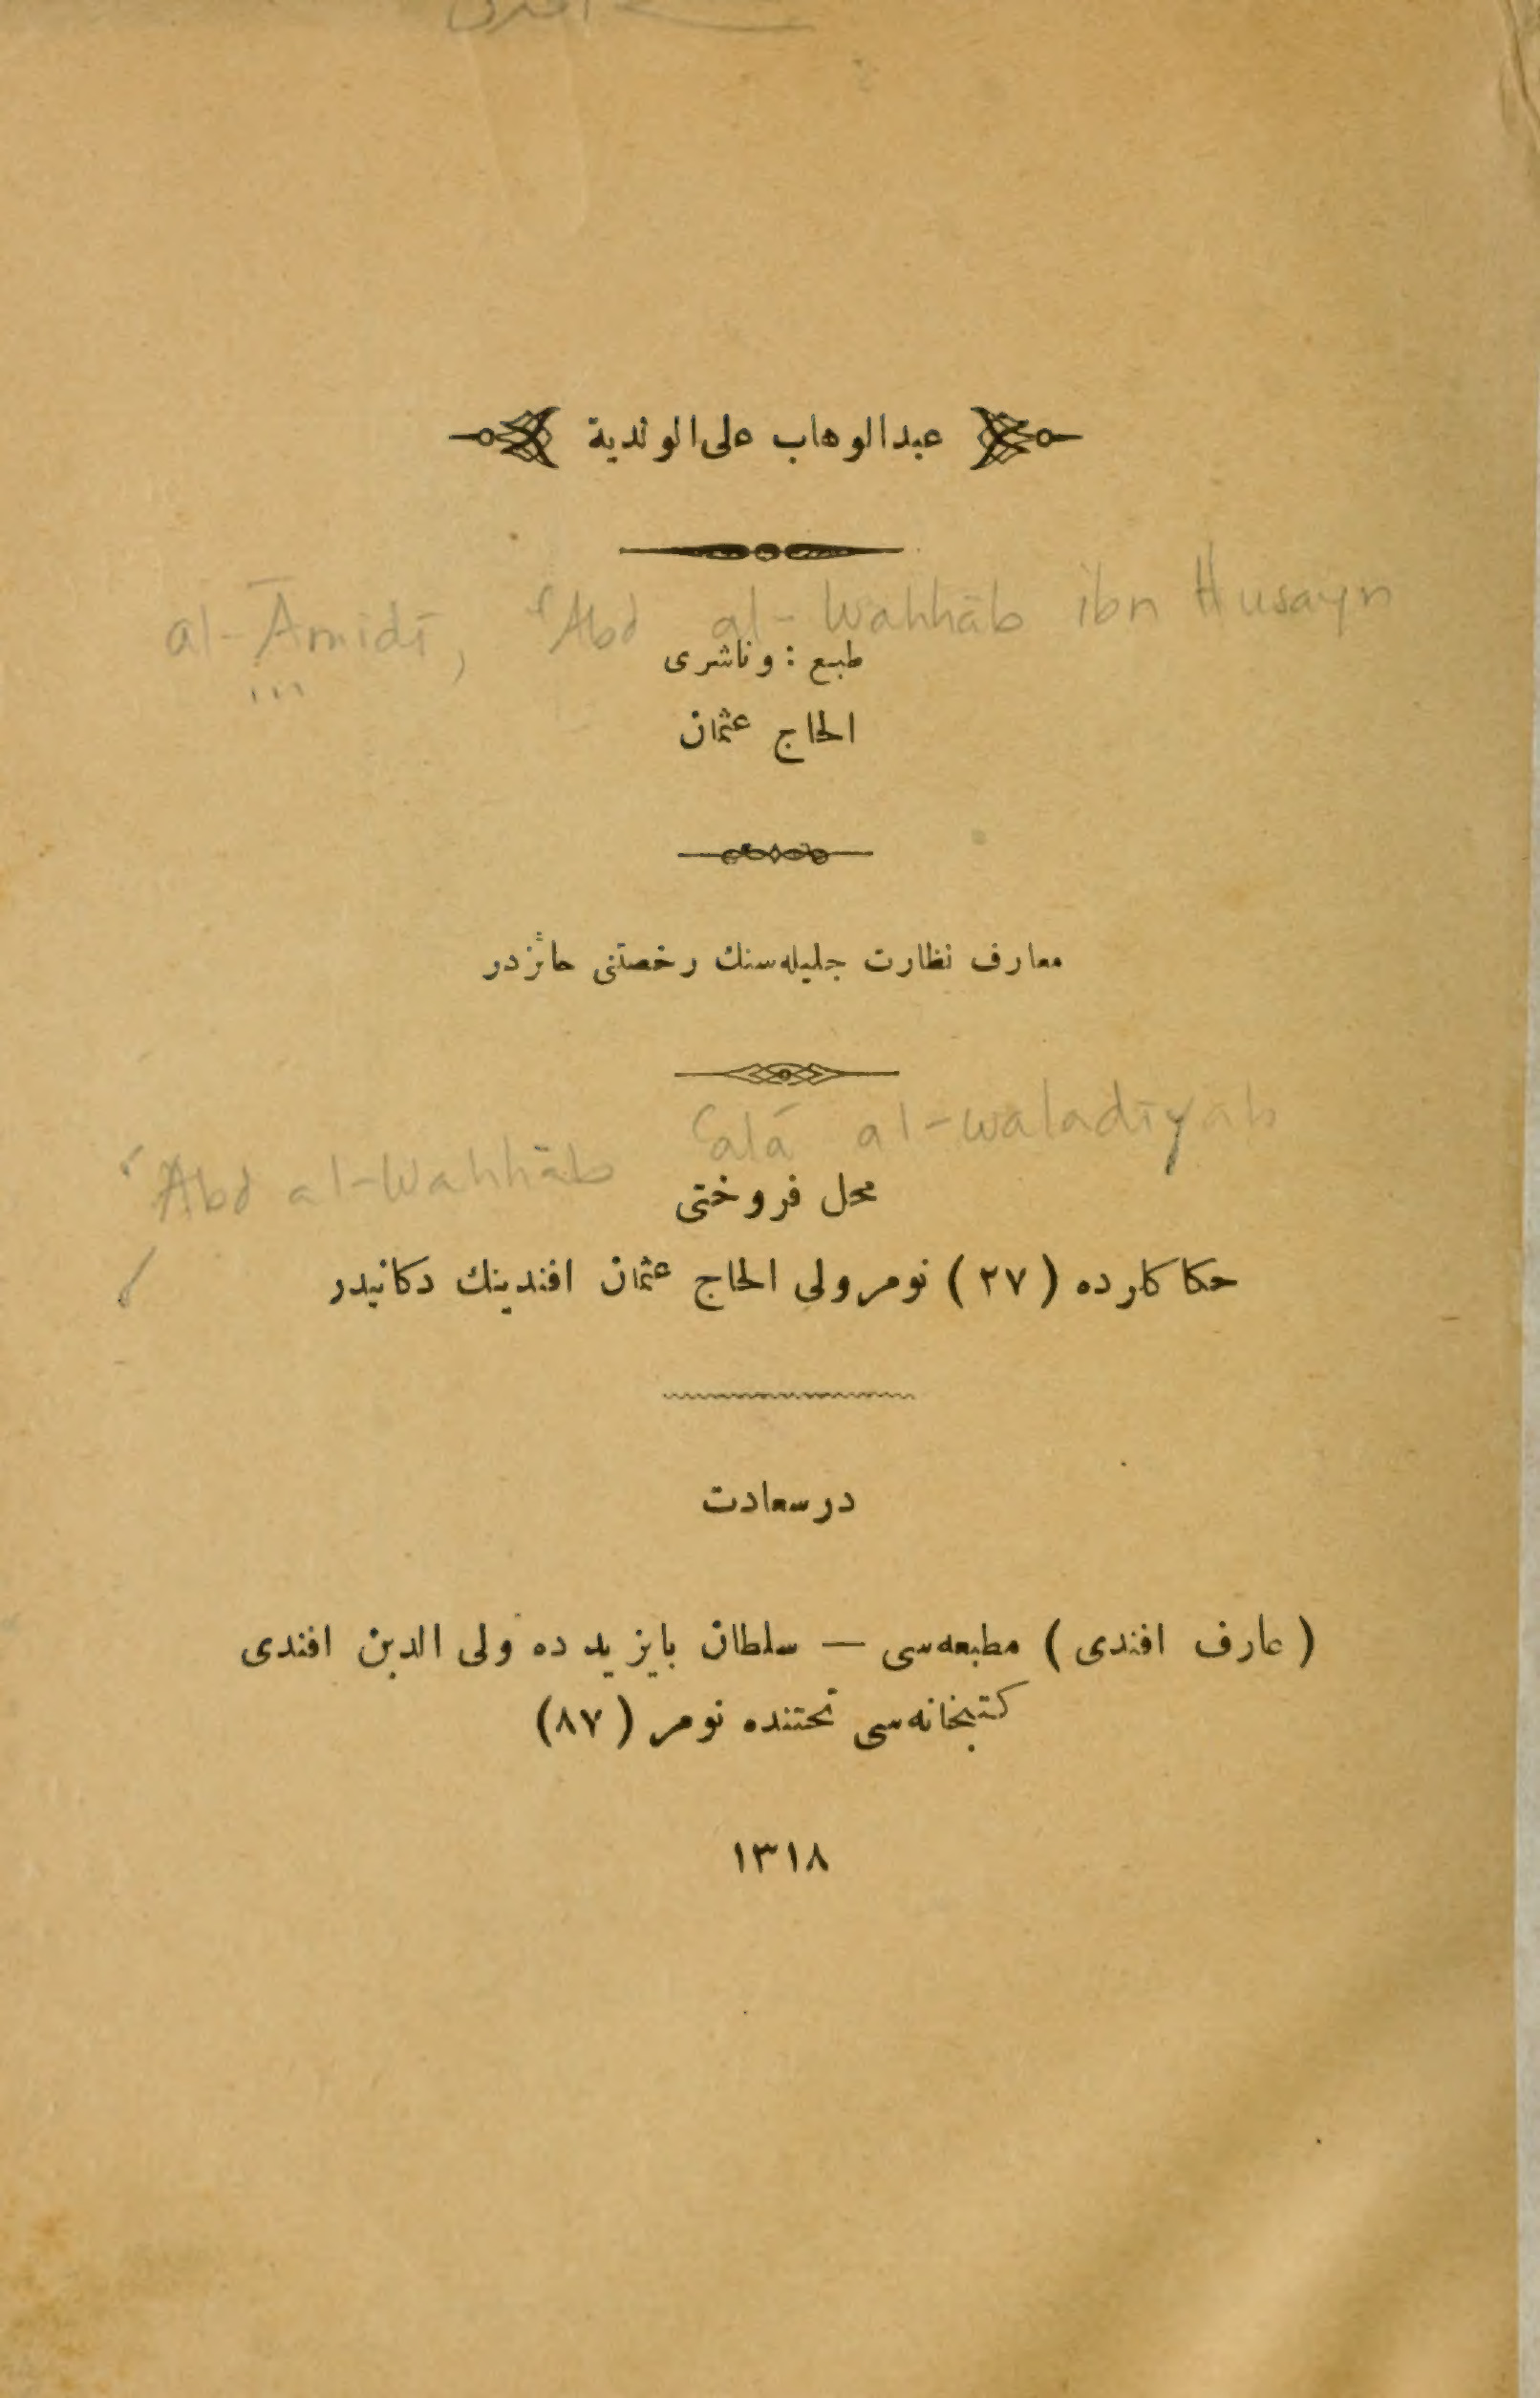 عبدالوهاب على الوندية
al-Āmidī, ʿAbd al-Wahhāb ibn Husayn
طبع : وناشرى
الحاج عثمان
معارف نظارت جليله‌سنك رخصتنى حائزدر
ʿAbd al-Wahhāb ʿalá al-waladīyah
محل فروختى
حكاكارده (٢٧) نومرولى الحاج عثمان افندينك دكانيدر
درسعادت
(عارف افندى) مطبعه‌سى — سلطان بايزيدده ولى الدين افندى
كتبخانه‌سى تحتنده نومر (٨٧)
١٣١٨